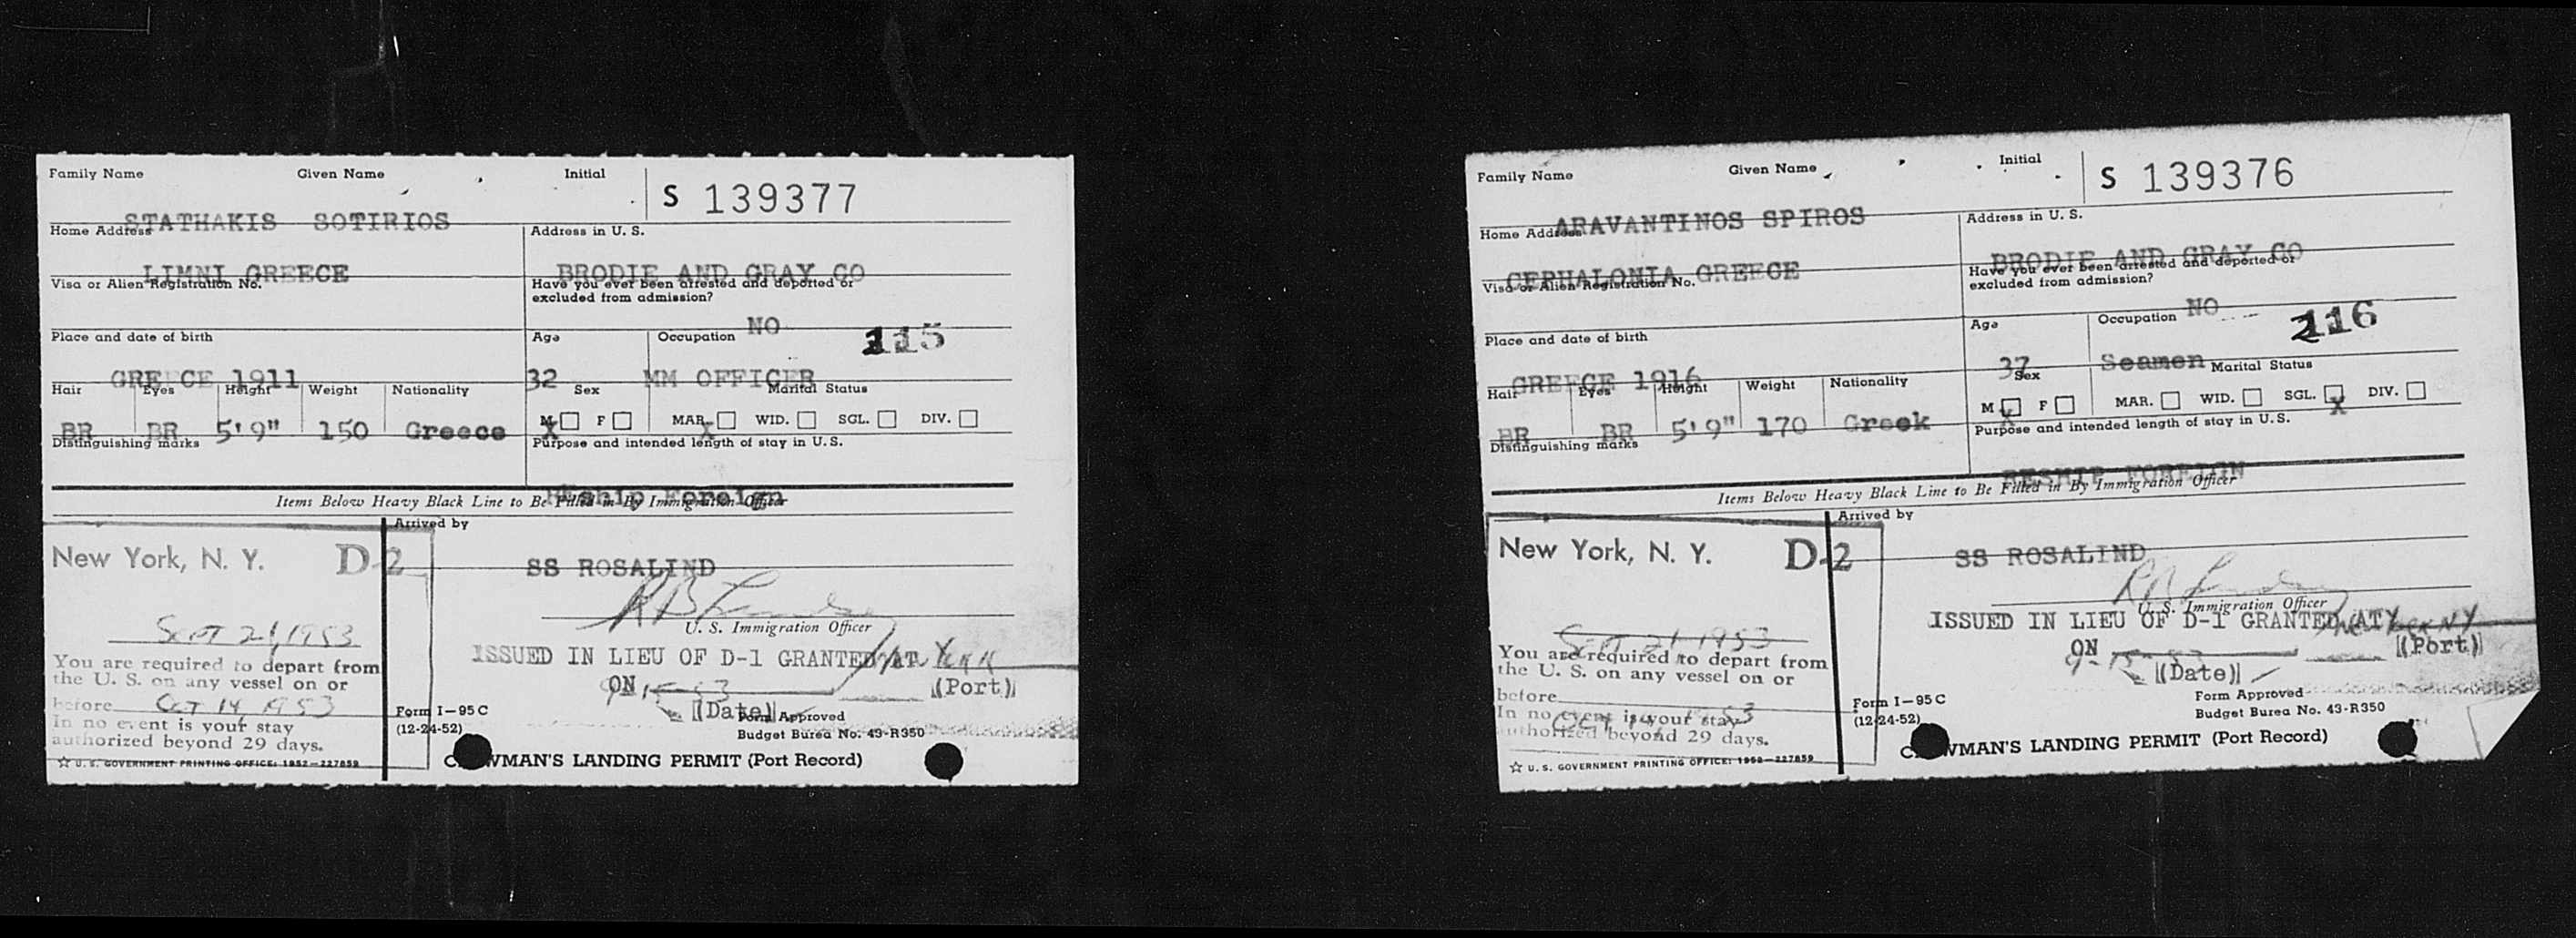 Family Name Given Name Initial
S 139377
STATHAKIS SOTIRIOS
Home Address Address in U. S.
LIMNI GREECE BRODIE AND GRAY CO
Visa or Alien Registration No. Have you ever been arrested and deported or
excluded from admission?
NO 115
Place and date of birth Age Occupation
GREECE 1911 32 MM OFFICER
Hair Eyes Height Weight Nationality Sex Marital Status
M F MAR. X WID. SGL. DIV.
BR BR 5'9" 150 Greece X
Distinguishing marks Purpose and intended length of stay in U.S.
Reship Foreign
Items Below Heavy Black Line to Be Filled in By Immigration Officer
Arrived by
New York, N. Y. D-2
SS ROSALIND
U. S. Immigration Officer
Sept 21, 1953
ISSUED IN LIEU OF D-1 GRANTED AT New York
You are required to depart from
the U. S. on any vessel on or
before Oct 14 1953
ON 9-15-53 (Port)
(Date)
In no event is your stay
authorized beyond 29 days.
Form I-95 C
(12-24-52)
Form Approved
Budget Burea No. 43-R350
☆ U. S. GOVERNMENT PRINTING OFFICE: 1952-227859
CREWMAN'S LANDING PERMIT (Port Record)
Family Name Given Name Initial
S 139376
ARAVANTINOS SPIROS
Home Address Address in U. S.
CEPHALONIA GREECE BRODIE AND GRAY CO
Visa or Alien Registration No. Have you ever been arrested and deported or
excluded from admission?
NO 116
Place and date of birth Age Occupation
GREECE 1916 37 Seamen
Hair Eyes Height Weight Nationality Sex Marital Status
M F MAR. WID. SGL. X DIV.
BR BR 5'9" 170 Greek X
Distinguishing marks Purpose and intended length of stay in U.S.
RESHIP FOREIGN
Items Below Heavy Black Line to Be Filled in By Immigration Officer
Arrived by
New York, N. Y. D-2
SS ROSALIND
U. S. Immigration Officer
Sept 21 1953
ISSUED IN LIEU OF D-1 GRANTED AT New York NY
You are required to depart from
the U. S. on any vessel on or
before Oct 14 1953
ON 9-15-53 (Port)
(Date)
In no event is your stay
authorized beyond 29 days.
Form I-95 C
(12-24-52)
Form Approved
Budget Burea No. 43-R350
☆ U. S. GOVERNMENT PRINTING OFFICE: 1952-227859
CREWMAN'S LANDING PERMIT (Port Record)